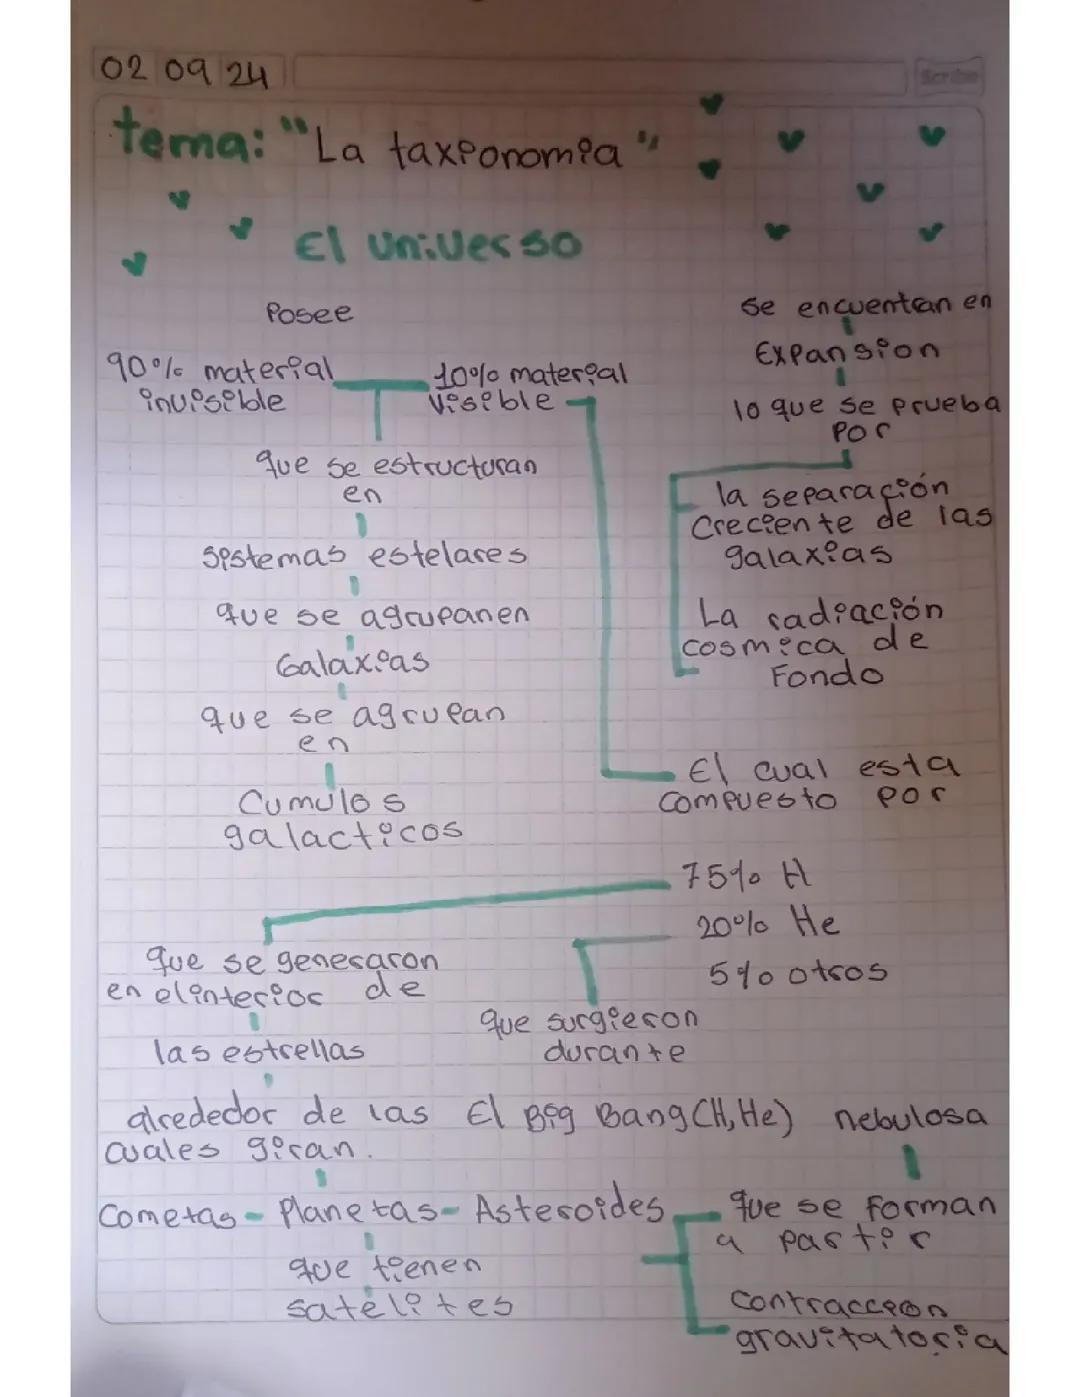 02 09 24
Scribe
tema: "La taxionomia"
El universo
Posee
90% material
invisible
10% material
visible
que se estructuran
en
sistemas estelares
que se agrupanen
Galaxias
que se agrupan
en
Cumulos
galacticos
se encuentran en
Expansion
lo que se prueba
por
la separación
creciente de las
galaxias
La radiación
cosmica de
Fondo
El cual esta
compuesto por
75% H
20% He
5% otros
que se generaron
en elinterior de
las estrellas
que surgieron
durante
alrededor de las
cuales giran.
El Big Bang (H, He)
nebulosa
Cometas - Planetas - Asteroides
que tienen
satélites
que se forman
a partir
contraccion
gravitatoria